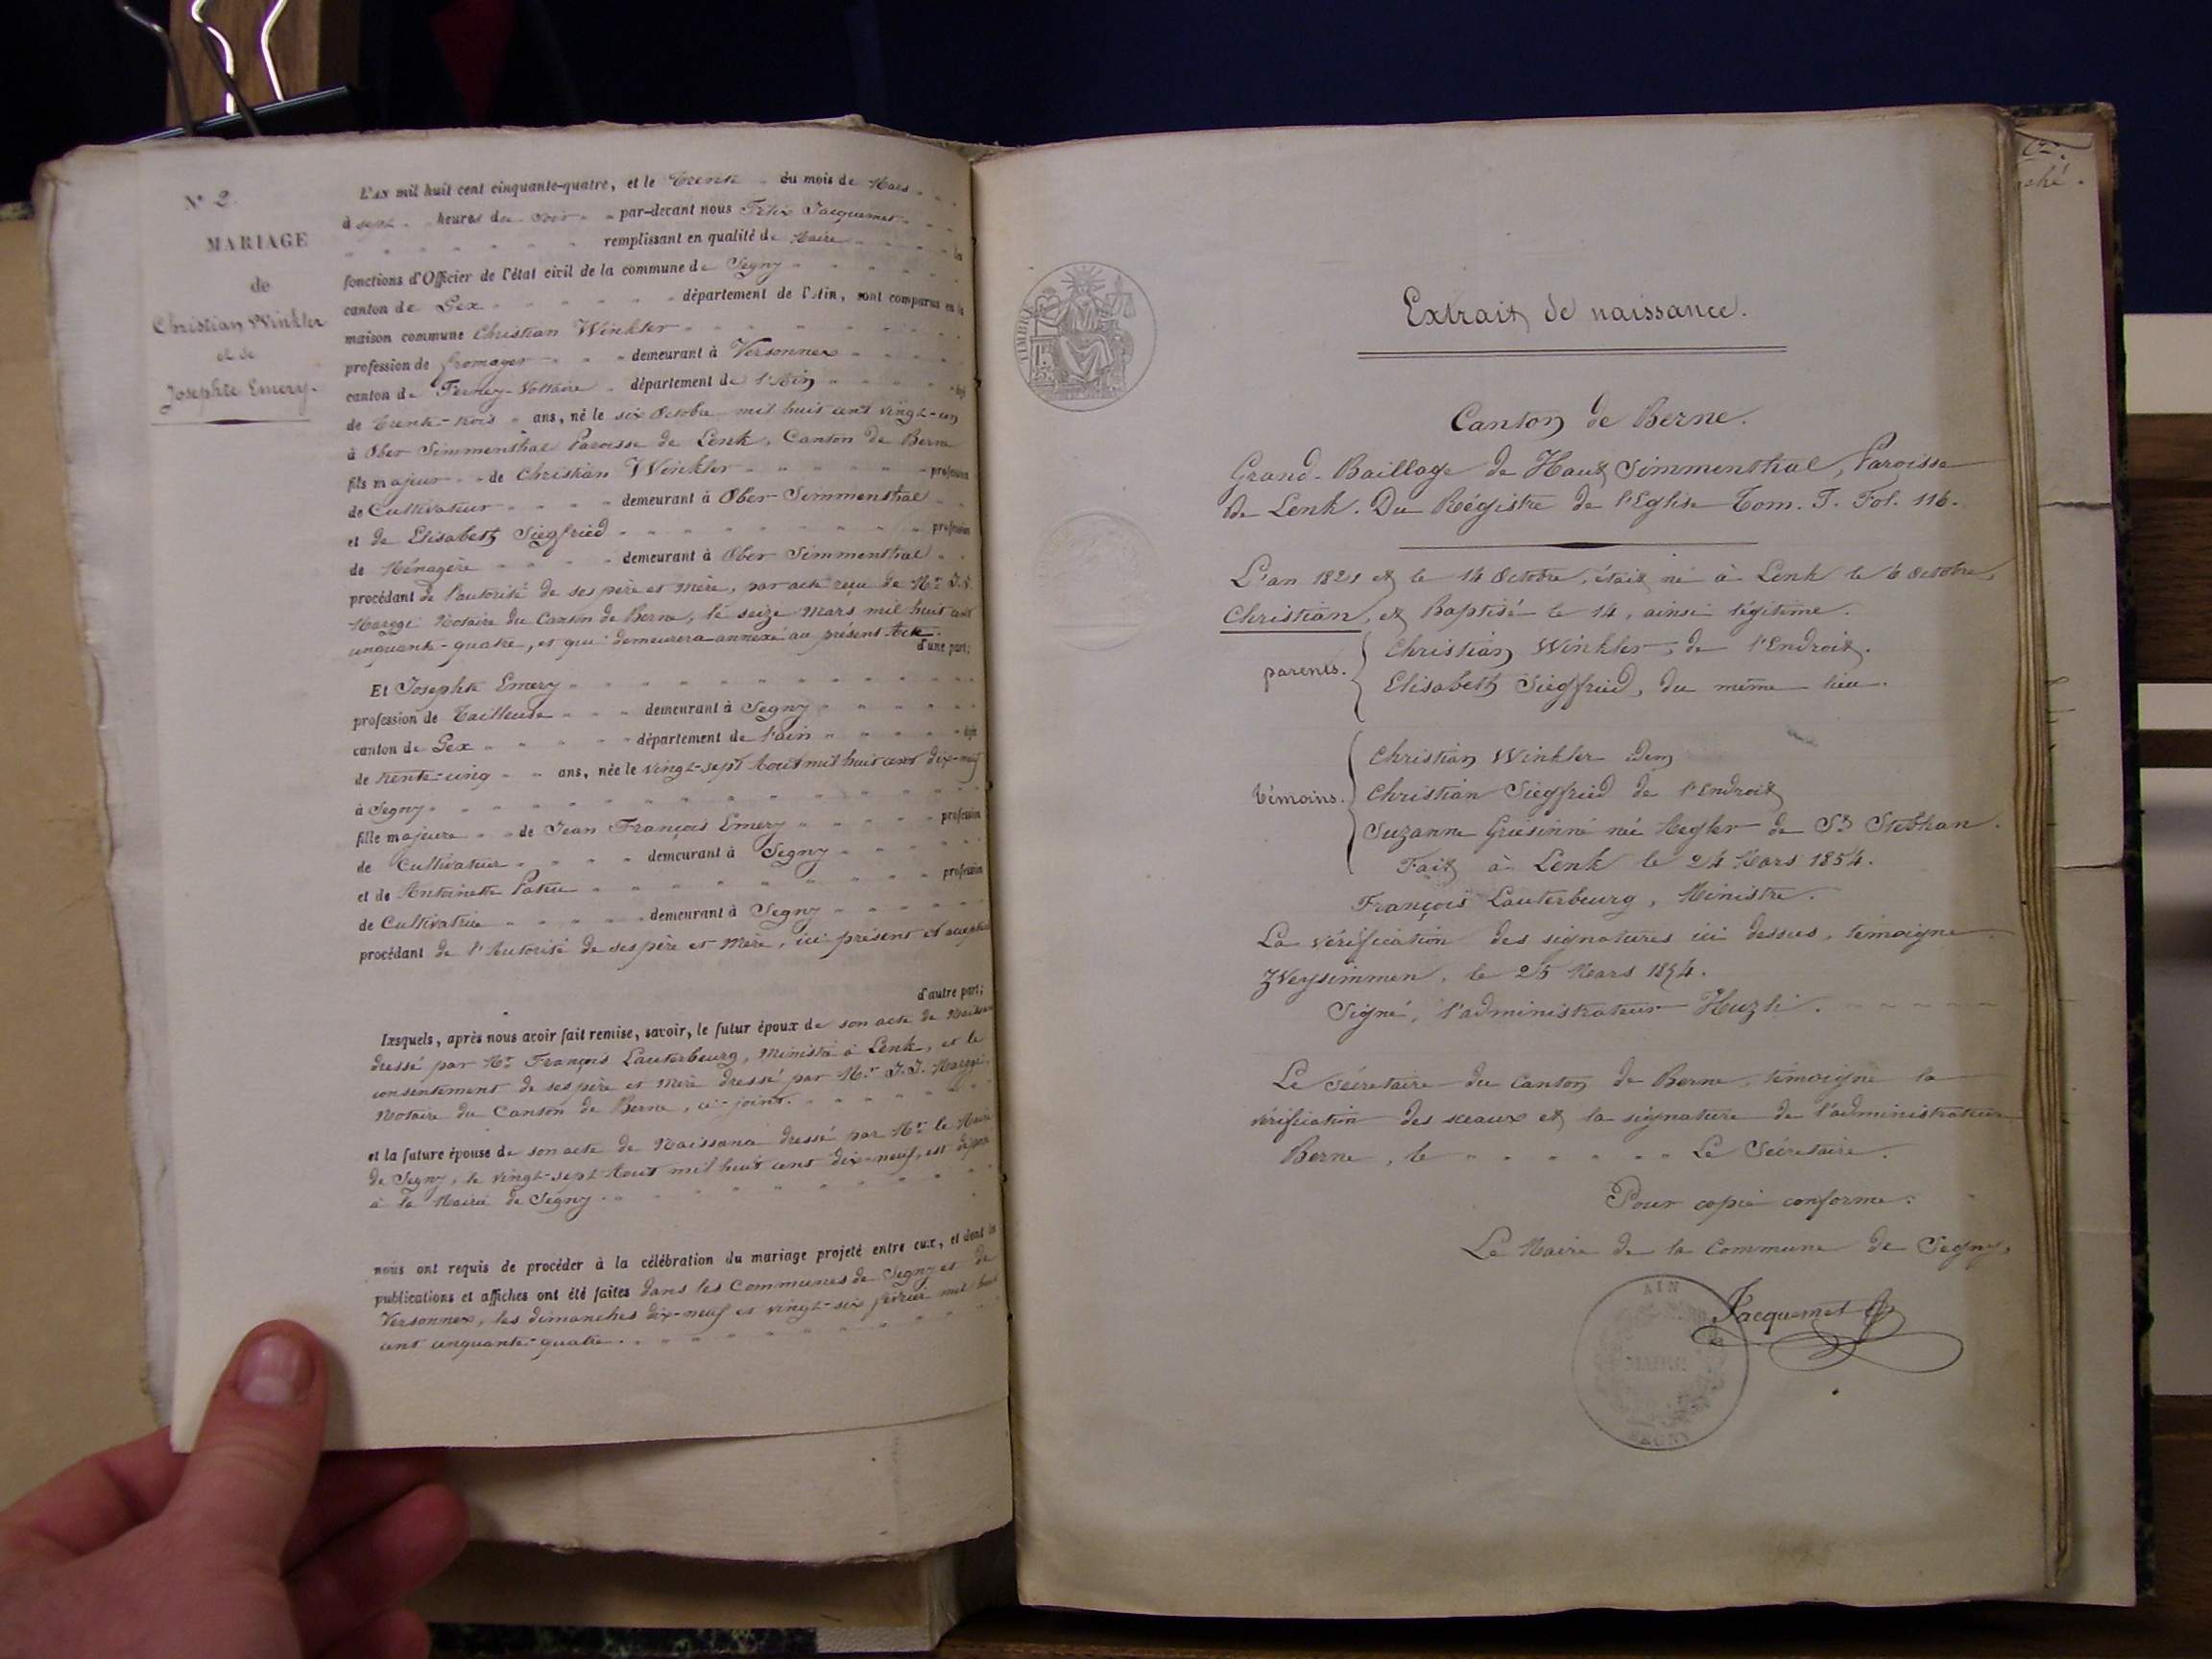 N° 2.
MARIAGE
de
Christian Winkler
et de
Josephte Emery.
L'AN mil huit cent cinquante-quatre, et le trente du mois de Mars
à sept heures du soir par-devant nous Félix Jacquemet
remplissant en qualité de Maire les
fonctions d'Officier de l'état civil de la commune de Segny
canton de Gex département de l'Ain, sont comparus en la
maison commune Christian Winkler
profession de fromager demeurant à Versonnex
canton de Ferney-Voltaire département de l'Ain âgé
de trente-trois ans, né le six Octobre mil huit cent vingt-un
à Ober Simmenthal Paroisse de Lenk, Canton de Berne
fils majeur de Christian Winkler profession
de Cultivateur demeurant à Ober-Simmenthal
et de Elisabeth Siegfried profession
de Ménagère demeurant à Ober Simmenthal
procédant de l'autorité de ses père et mère, par acte reçu de Mr J. J.
Marggi Notaire du Canton de Berne, le seize Mars mil huit cent
cinquante-quatre, et qui demeurera annexé au présent Acte.
d'une part;
Et Josephte Emery
profession de Tailleuse demeurant à Segny
canton de Gex département de l'ain âgée
de trente-cinq ans, née le vingt-sept Aout mil huit cent dix-neuf
à Segny
fille majeure de Jean François Emery profession
de Cultivateur demeurant à Segny
et de Antoinette profession
de Cultivatrice demeurant à Segny
procédant de l'Autorité de ses père et mère, ici présent et acceptant
d'autre part;
Lesquels, après nous avoir fait remise, savoir, le futur époux de son acte de Naissance
dressé par Mr François Lauterbourg, Ministre à Lenk, et le
consentement de ses père et mère dressé par Mr J. J. Marggi,
Notaire du Canton de Berne, ci-joint.
et la future épouse de son acte de Naissance dressé par Mr le Maire
de Segny, le vingt-sept Aout mil huit cent dix-neuf, est déposé
à la Mairie de Segny.
nous ont requis de procéder à la célébration du mariage projeté entre eux, et dont les
publications et affiches ont été faites dans les Communes de Segny et de
Versonnex, les dimanches dix-neuf et vingt-six février mil huit
cent cinquante-quatre.
TIMBRE
Extrait de naissance.
Canton de Berne.
Grand-Baillage de Haut Simmenthal, Paroisse
de Lenk. Du Régistre de l'Eglise Tom. I. Fol. 116.
L'an 1821 et le 14 Octobre, était né à Lenk le 6 Octobre,
Christian, et Baptisé le 14, ainsi légitime.
parents. Christian Winkler, de l'Endroit.
Elisabeth Siegfried, du même lieu.
témoins. Christian Winkler idem
Christian Siegfried de l'Endroit
Suzanne née de St Stephan.
Fait à Lenk le 24 Mars 1854.
François Lauterbourg, Ministre.
La vérification des signatures ici dessus, témoigne
Zweysimmen, le 25 Mars 1854.
Signé, l'administrateur
Le Sécretaire du Canton de Berne témoigne la
vérification des sceaux et la signature de l'administrateur
Berne, le Le Sécretaire.
Pour copie conforme:
Le Maire de la Commune de Segny,
Jacquemet
AIN
MAIRIE
SEGNY